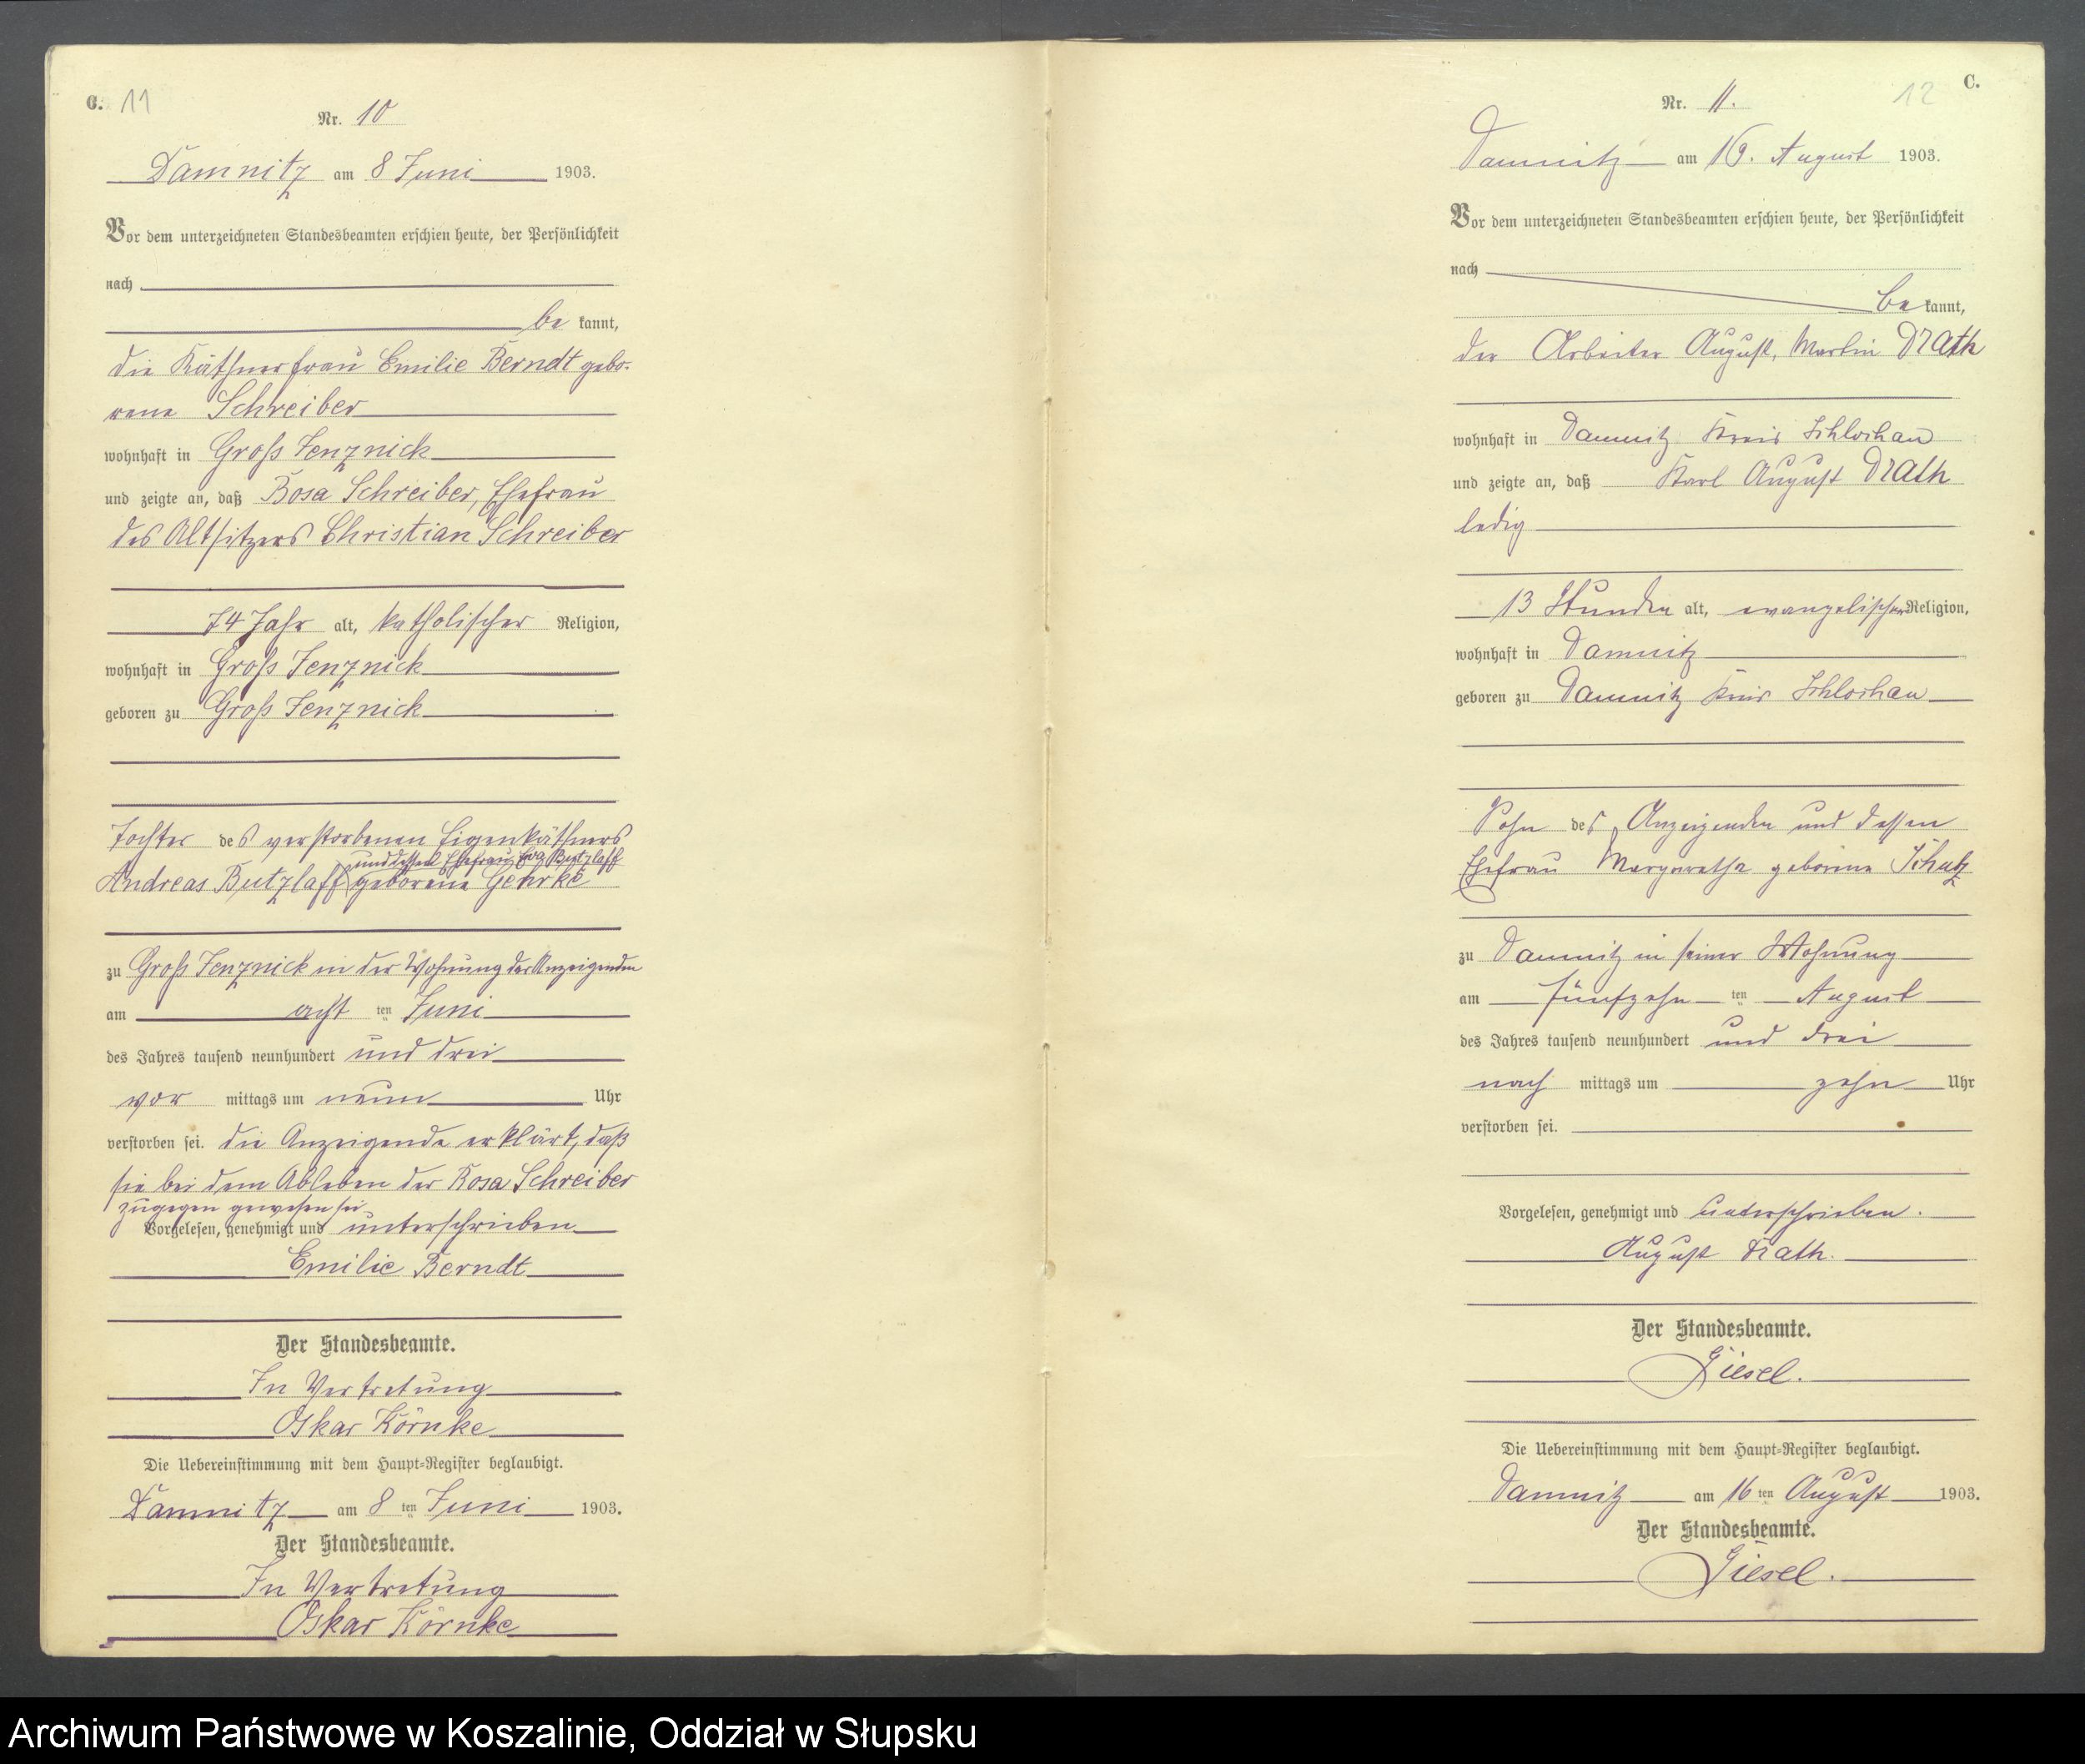 C. 11
Nr. 10
Damnitz am 8 Juni 1903.
Vor dem unterzeichneten Standesbeamten erschien heute, der Persönlichkeit
nach
be kannt,
die Käthnerfrau Emilie Berndt gebo-
rene Schreiber
wohnhaft in Groß Jenznick
und zeigte an, daß Rosa Schreiber, Ehefrau
des Altsitzers Christian Schreiber
74 Jahr alt, katholischer Religion,
wohnhaft in Groß Jenznick
geboren zu Groß Jenznick
Tochter des verstorbenen Eigenkäthners
und dessen Ehefrau Eva Butzlaff
Andreas Butzlaff geborene Gehrke
zu Groß Jenznick in der Wohnung der Anzeigenden
am acht ten Juni
des Jahres tausend neunhundert und drei
vor mittags um neun Uhr
verstorben sei. die Anzeigende erklärt, daß
sie bei dem Ableben der Rosa Schreiber
zugegen gewesen sei
Vorgelesen, genehmigt und unterschrieben
Emilie Berndt
Der Standesbeamte.
In Vertretung
Oskar Körnke
Die Uebereinstimmung mit dem Haupt-Register beglaubigt.
Damnitz am 8 ten Juni 1903.
Der Standesbeamte.
In Vertretung
Oskar Körnke
12 C.
Nr. 11.
Damnitz am 16. August 1903.
Vor dem unterzeichneten Standesbeamten erschien heute, der Persönlichkeit
nach
be kannt,
der Arbeiter August, Martin Drath
wohnhaft in Damnitz Kreis Schlochau
und zeigte an, daß Karl August Drath
ledig
13 Stunden alt, evangelischer Religion,
wohnhaft in Damnitz
geboren zu Damnitz Kreis Schlochau
Sohn des Anzeigenden und dessen
Ehefrau Margarethe geborene
zu Damnitz in seiner Wohnung
am fünfzehn ten August
des Jahres tausend neunhundert und drei
nach mittags um zehn Uhr
verstorben sei.
Vorgelesen, genehmigt und unterschrieben.
August Drath.
Der Standesbeamte.
Giesel.
Die Uebereinstimmung mit dem Haupt-Register beglaubigt.
Damnitz am 16 ten August 1903.
Der Standesbeamte.
Giesel.
Archiwum Państwowe w Koszalinie, Oddział w Słupsku